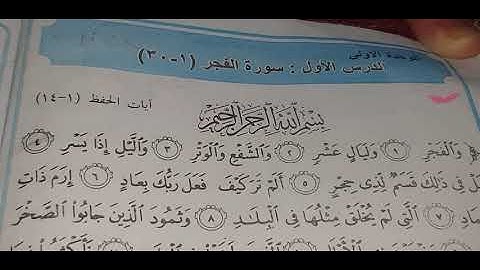 الوحدة الأولى
الدرس الأول : سورة الفجر (١-٣٠)
آيات الحفظ (١-١٤)
بِسْمِ اللَّهِ الرَّحْمَٰنِ الرَّحِيمِ
وَالْفَجْرِ ١ وَلَيَالٍ عَشْرٍ ٢ وَالشَّفْعِ وَالْوَتْرِ ٣ وَاللَّيْلِ إِذَا يَسْرِ ٤
هَلْ فِي ذَٰلِكَ قَسَمٌ لِّذِي حِجْرٍ ٥ أَلَمْ تَرَ كَيْفَ فَعَلَ رَبُّكَ بِعَادٍ ٦ إِرَمَ ذَاتِ
الْعِمَادِ ٧ الَّتِي لَمْ يُخْلَقْ مِثْلُهَا فِي الْبِلَادِ ٨ وَثَمُودَ الَّذِينَ جَابُوا الصَّخْرَ